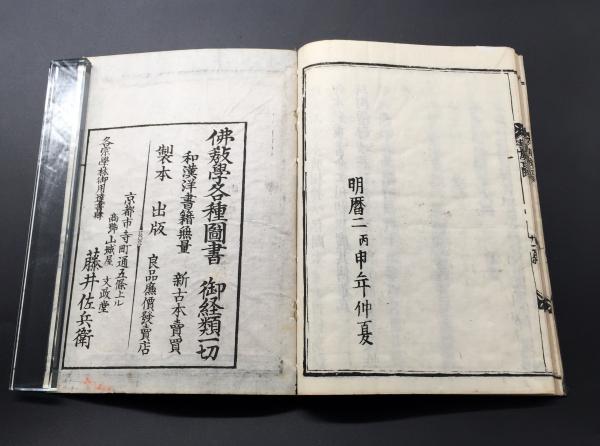 明暦二丙申年仲夏
佛教學各種圖書 御経類一切
和漢洋書籍無量 新古本賣買
製本 出版 良品廉價發賣店
京都市寺町通五條上ル
各宗學林御用達書肆 高野山城屋 文政堂
藤井佐兵衛